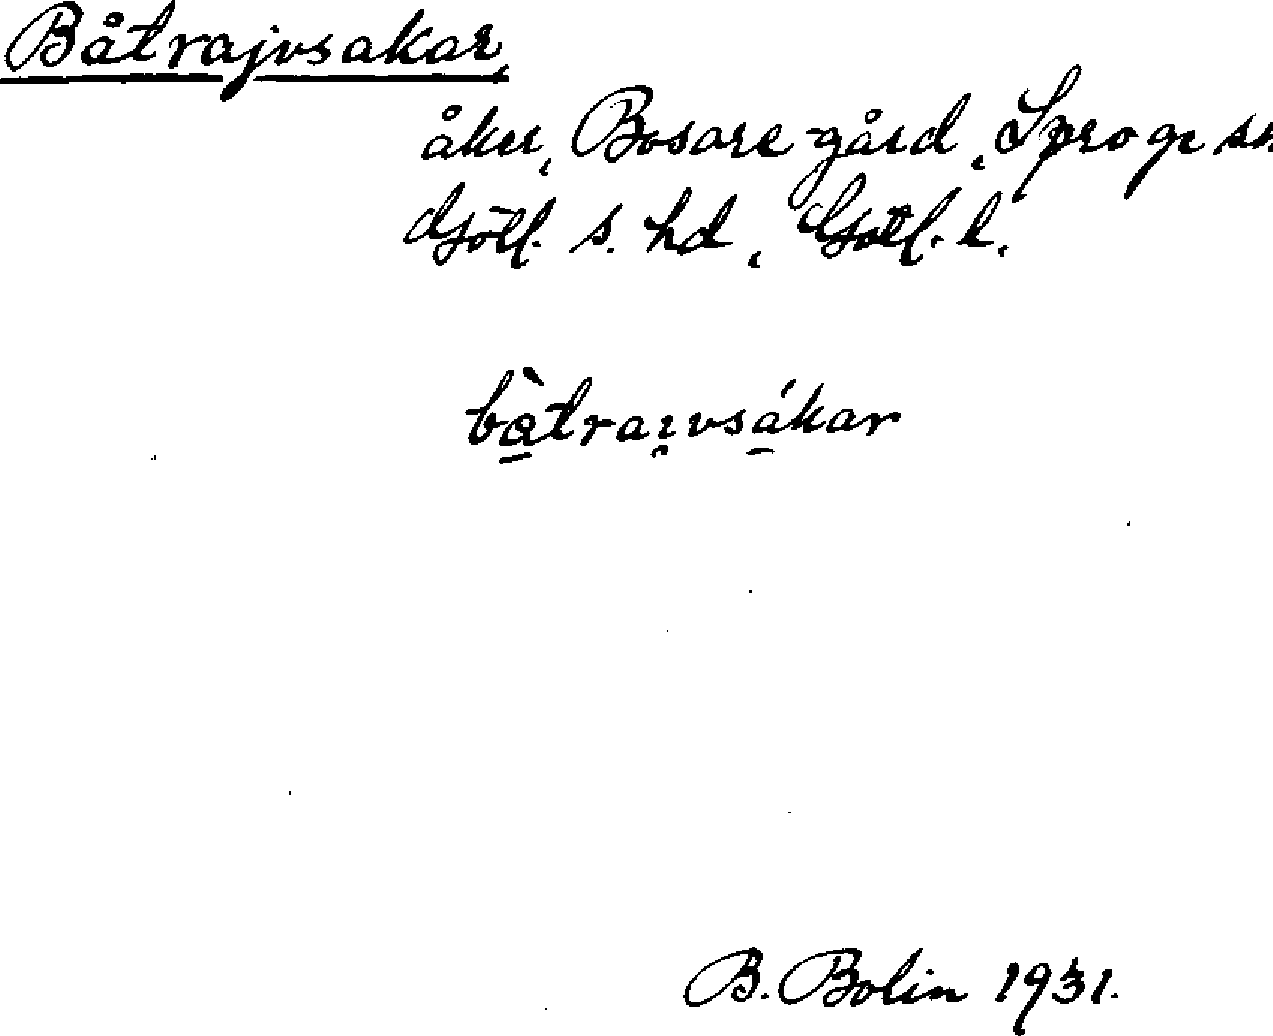 Båtrajvsakar,
åker, Bosarve gård, Sproge sn
Götl. s. hd, Götl. l.
bàtrai̯vsákar
B. Bolin 1931.